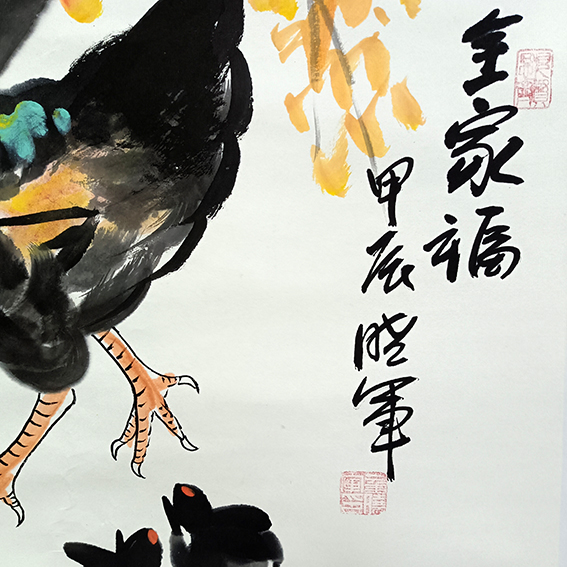 全家福
甲辰
晓军